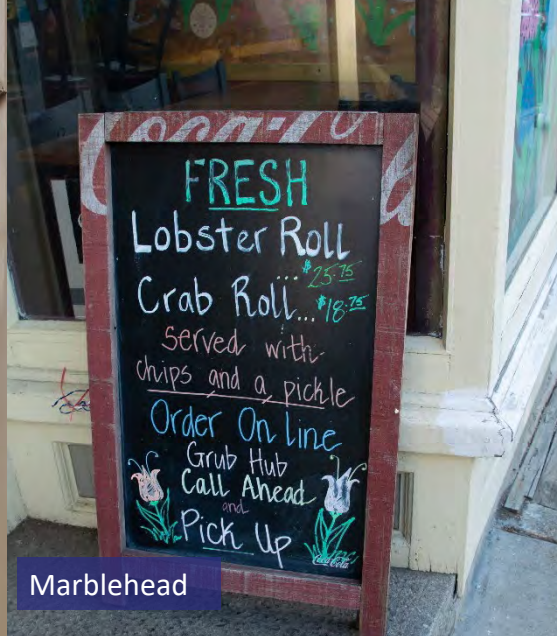 Coca-Co
FRESH
Lobster Roll
... $25.75
Crab Roll... $18.75
Served with
chips and a pickle
Order On line
Grub Hub
Call Ahead
and
Pick Up
Coca-Cola
Marblehead